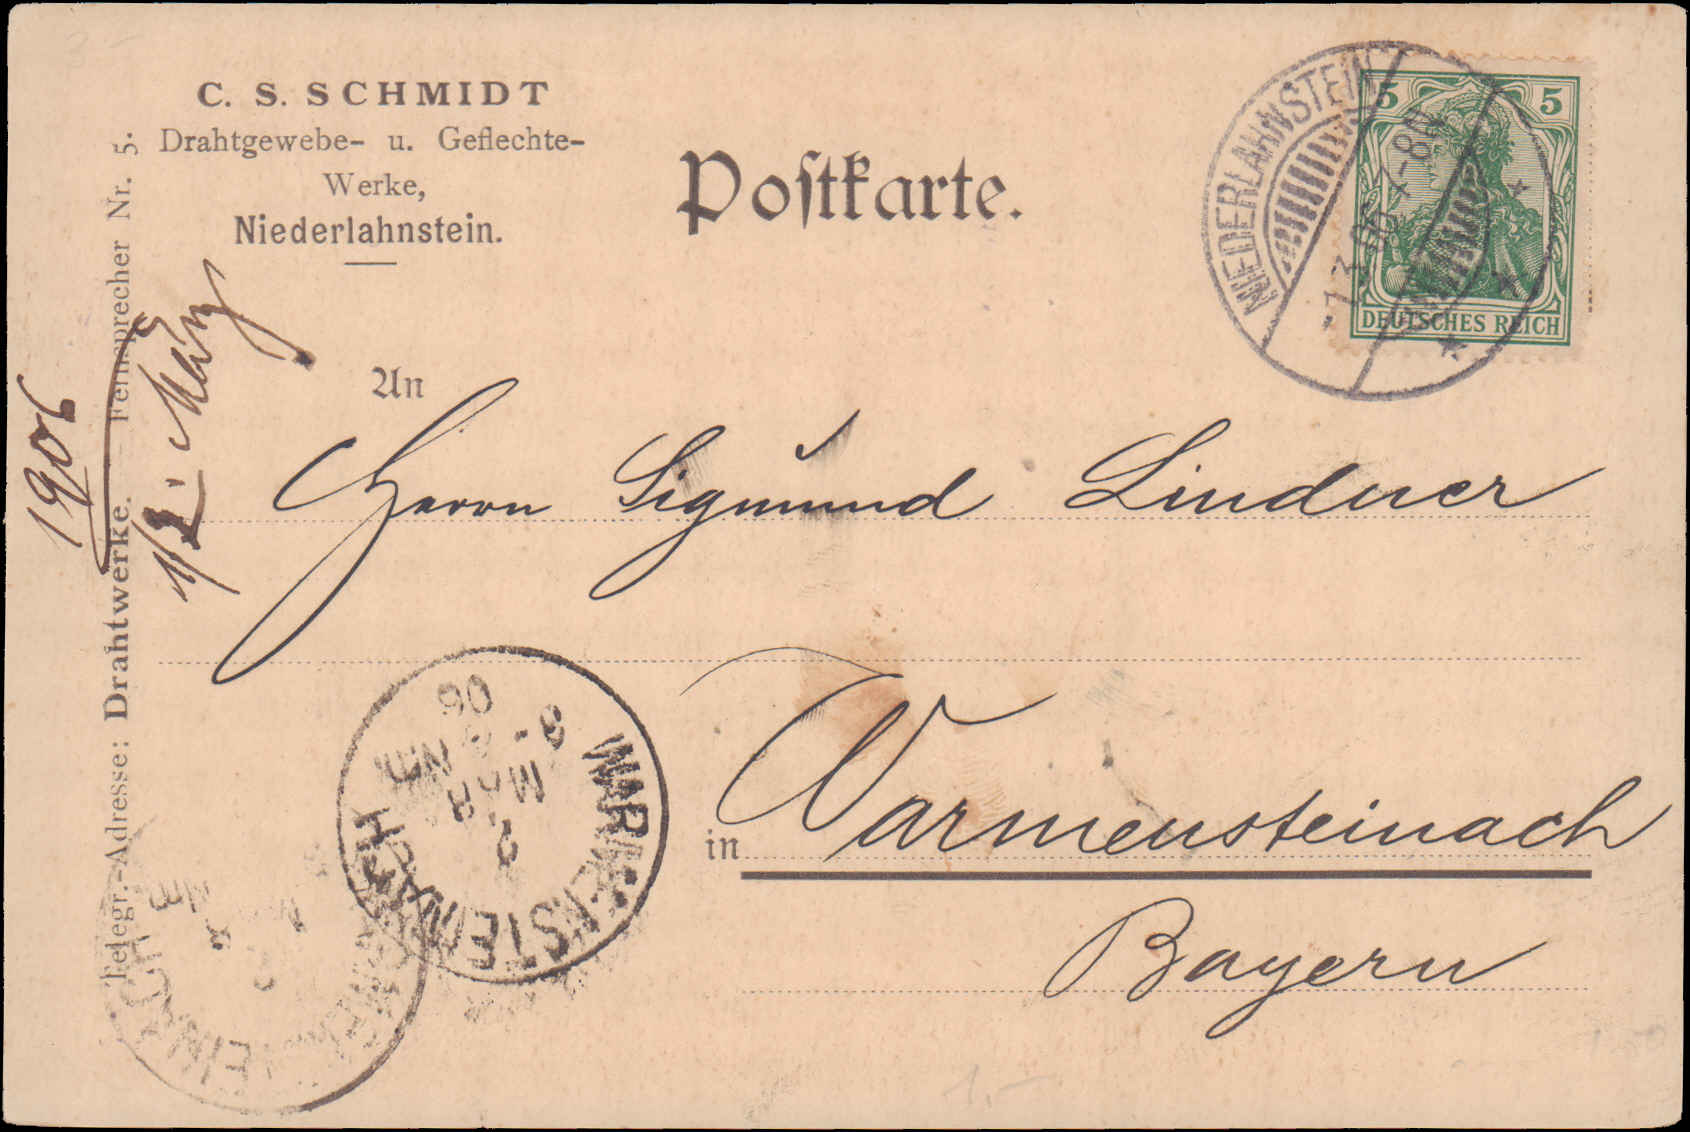 C. S. SCHMIDT
Drahtgewebe- u. Geflechte-
Werke,
Niederlahnstein.
Poſtkarte.
NIEDERLAHNSTEIN
7.3.06 7-8N
5 5
DEUTSCHES REICH
Telegr.-Adresse: Drahtwerke. Fernsprecher Nr. 5.
1906
1/2. März
An
Herrn Sigmund Lindner
in Warmensteinach
Bayern
WARMENSTEINACH
2.
MAR
8-9 NM
06